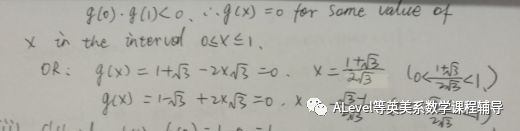 g(0)·g(1)<0, ∴g(x)=0 for some value of
x in the interval 0≤x≤1.
OR: g(x)=1+√3-2x√3=0. x=(1+√3)/(2√3) (0<(1+√3)/(2√3)<1)
g(x)=1-√3+2x√3=0, x
ALevel等英美系数学课程辅导